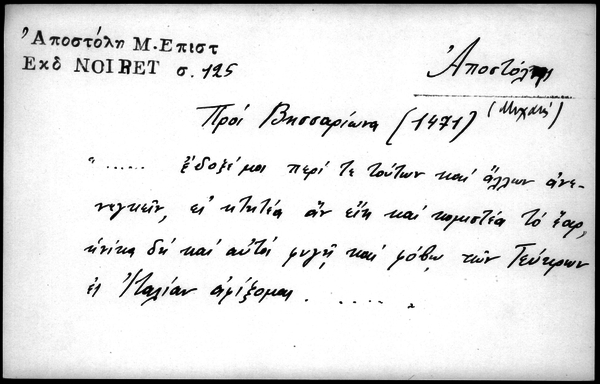 Ἀποστόλη Μ. Επιστ
Εκδ NOIRET σ. 125
Ἀποστόλης
(Μιχαήλ)
Πρὸς Βησσαρίωνα (1471)
"...... ἔδοξέ μοι περί τε τούτων καὶ ἄλλων ἀνε-
νεγκεῖν, εἰ κτητέα ἂν εἴη καὶ κομιστέα τὸ ἔαρ,
ἡνίκα δὴ καὶ αὐτοὶ φυγῇ καὶ φόβῳ τῶν Τεύκρων
εἰς Ἰταλίαν ἀφίξομαι ....... "